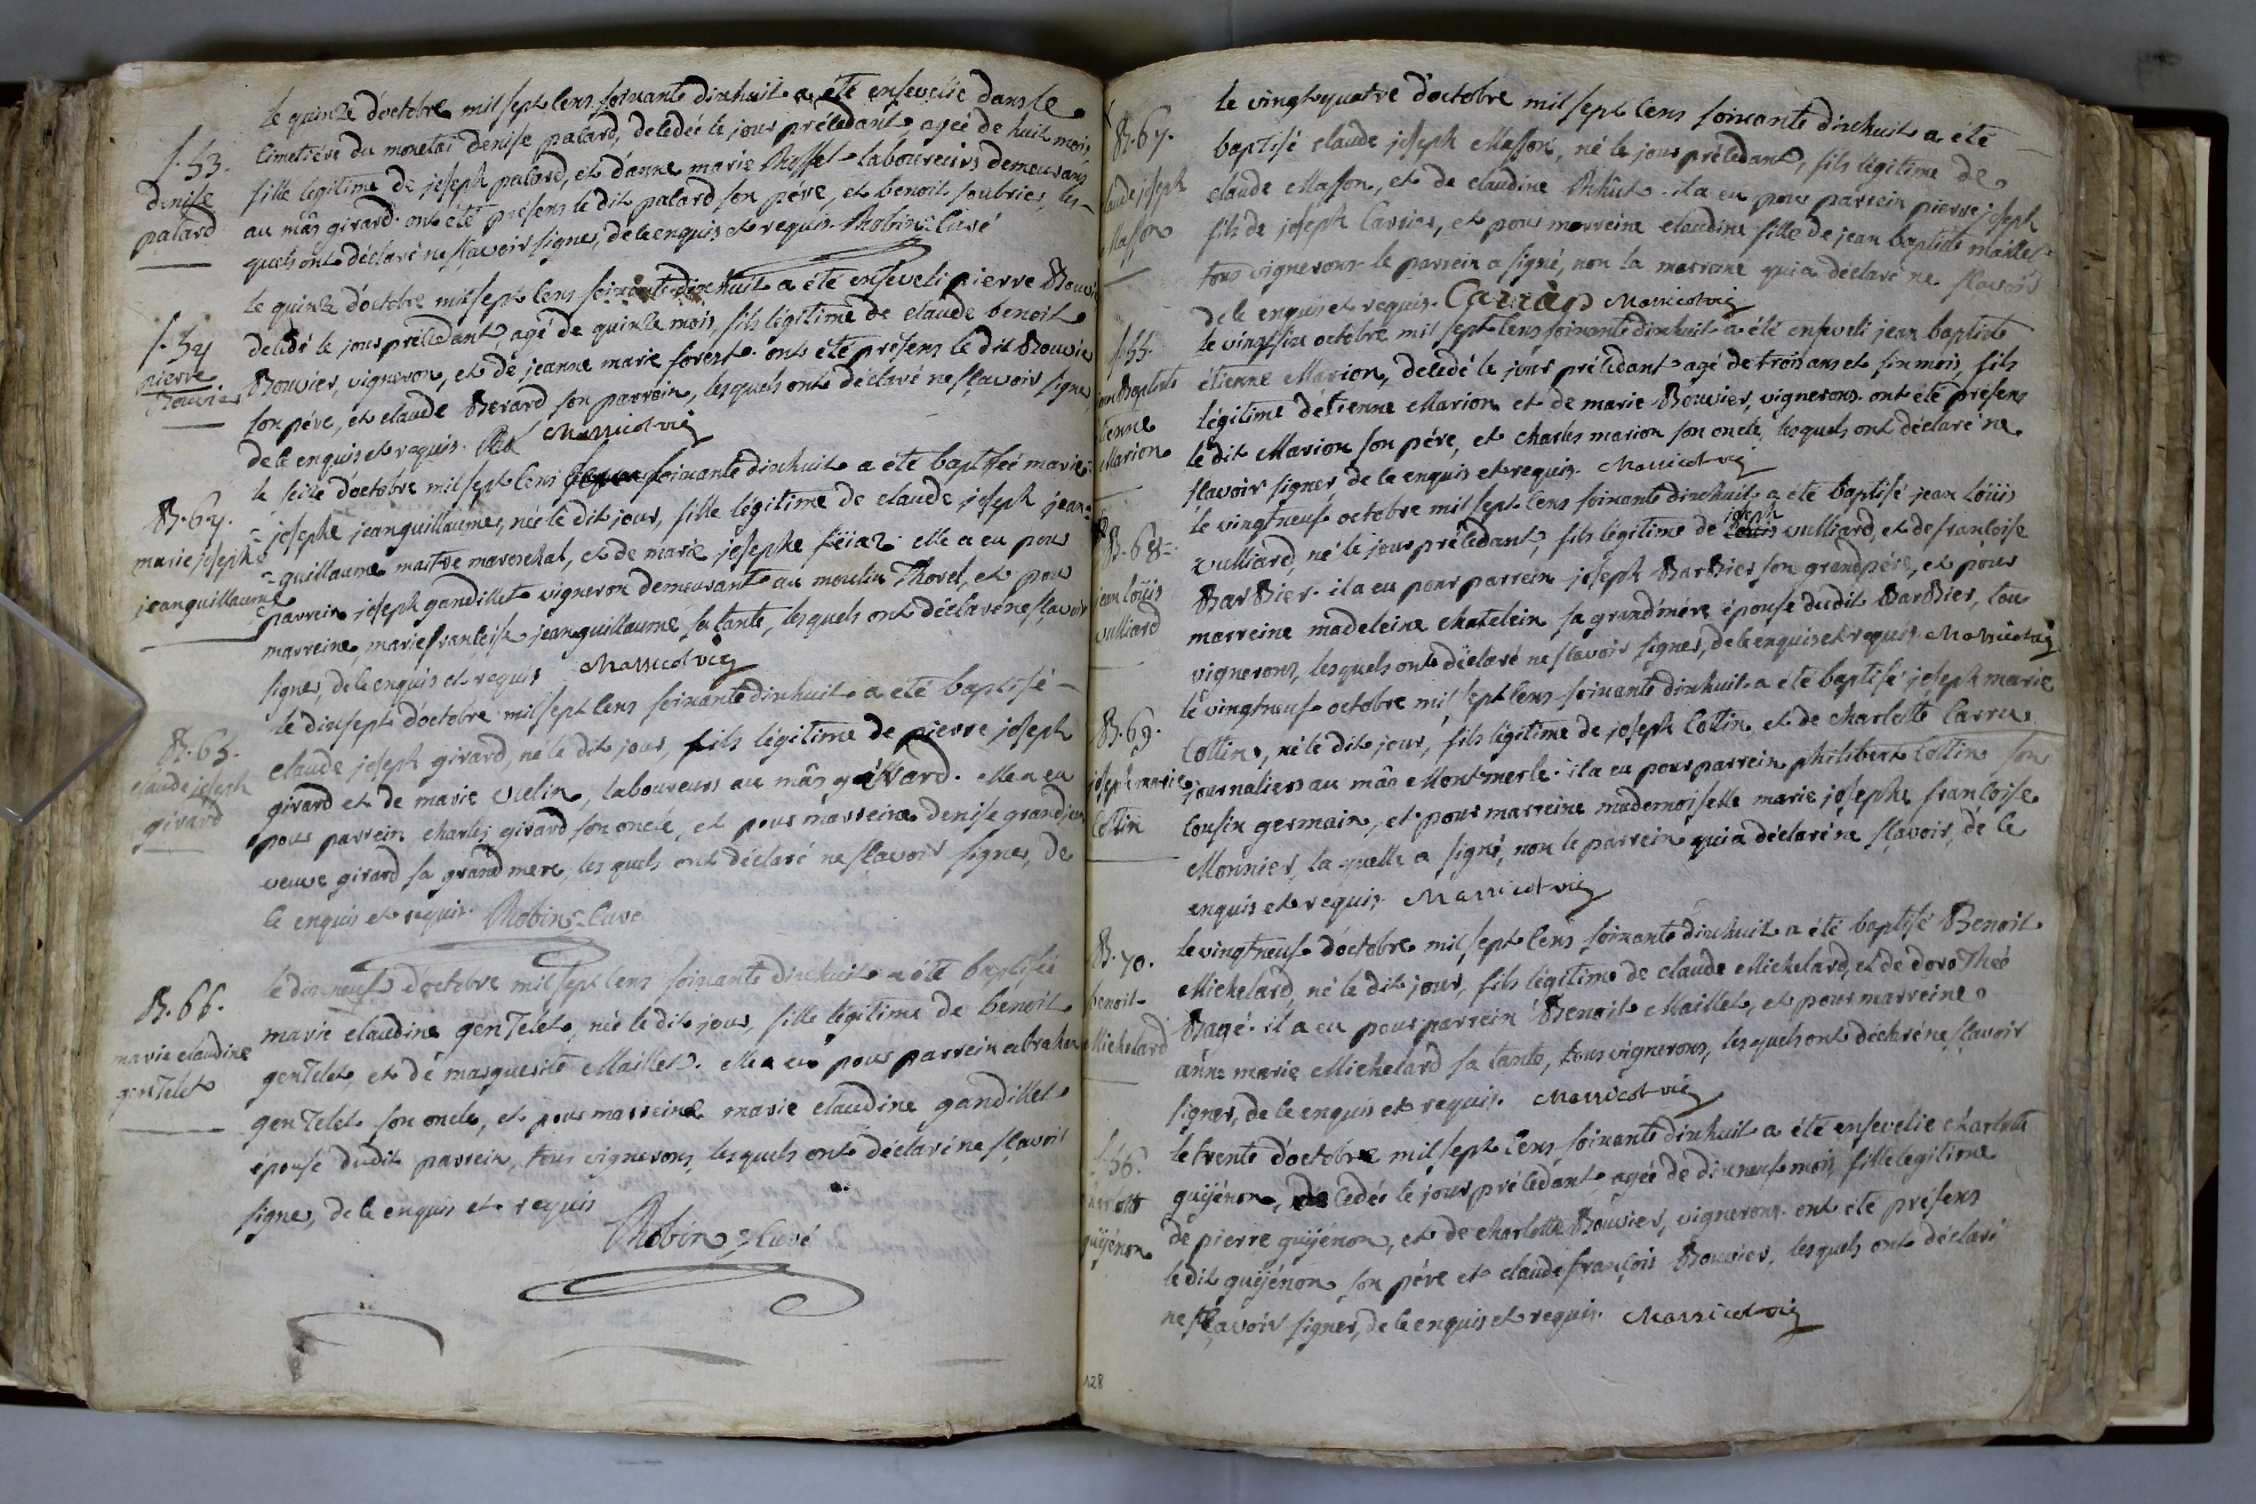 S. 53.
denise
palard
le quinze d'octobre mil sept cens soixante dixhuit a été ensevelie dans le
cimetière du monetai denise palard, decedée le jour précédant, agée de huit mois
fille légitime de joseph palard, et d'anne marie Rossel laboureurs demeurans
au mâs girard. ont été présens le dit palard son pére, et benoit soubrier, les-
quels ont déclaré ne sçavoir signer, de ce enquis et requis. Robin Curé
S. 54
pierre
Bouvier
le quinze d'octobre mil sept cens soixante dixhuit a été enseveli pierre Bouvier
decédé le jour précédant, agé de quinze mois, fils légitime de claude benoit
Bouvier, vigneron, et de jeanne marie forest. ont été présens le dit Bouvier
son pére, et claude Berard son parrein, lesquels ont déclaré ne sçavoir signer
de ce enquis et requis. Marricot vic
B. 64.
marie josephe
jeanguillaume
le seize d'octobre mil sept cens soixante dixhuit a été baptisée marie
= josephe jeanguillaume, née le dit jour, fille légitime de claude joseph jean=
=guillaume maitre marechal, et de marie josephe féiaz. elle a eu pour
parrein joseph gandillet vigneron demeurant au moulin Thorel, et pour
marreine marie francoise jeanguillaume sa tante, lesquels ont déclaré ne sçavoir
signer, de ce enquis et requis Marricot vic
B. 65.
claude joseph
girard
le dixsept d'octobre mil sept cens soixante dixhuit a été baptisé -
claude joseph girard, né le dit jour, fils légitime de pierre joseph
girard et de marie vielin, laboureurs au mâs . elle a eu
pour parrein charles girard son oncle, et pour marreine denise grandjean
veuve girard sa grand mere, les quels ont déclaré ne sçavoir signer, de
ce enquis et requis. Robin Curé
B. 66.
marie claudine
genTelet
le dixneuf d'octobre mil sept cens soixante dixhuit a été baptisée
marie claudine genTelet, née le dit jour, fille légitime de benoit
genTelet et de marguerite Maillet. elle a eu pour parrein abraham
genTelet son oncle, et pour marreine marie claudine gandillet
épouse dudit parrein, tous vignerons, lesquels ont déclaré ne sçavoir
signer, de ce enquis et requis
Robin Curé
B. 67.
claude joseph
Masson
le vingt quatre d'octobre mil sept cens soixante dixhuit a été
baptisé claude joseph Masson, né le jour précédant, fils légitime de
claude Masson, et de claudine . il a eu pour parrein pierre joseph
fils de joseph Carrier, et pour marreine claudine fille de jean baptiste maillet
tous vignerons. le parrein a signé, non la marreine qui a déclaré ne sçavoir
de ce enquis et requis. Marricot vic
S. 55.
jean Baptiste
étienne
Marion
le vingt six octobre mil sept cens soixante dixhuit a été enseveli jean baptiste
étienne Marion, decedé le jour précédant agé de trois ans et six mois, fils
légitime d'étienne Marion et de marie Bouvier, vignerons. ont été présens
le dit Marion son pére, et charles marion son oncle, lesquels ont déclaré ne
sçavoir signer de ce enquis et requis. Marricot vic
B. 68.
jean loüis
vulliard
le vingt neuf octobre mil sept cens soixante dixhuit a été baptisé jean loüis
joseph
vulliard, né le jour précédant, fils légitime de louis vulliard, et de francoise
BarBier. il a eu pour parrein joseph BarBier son grandpére, et pour
marreine madeleine chatelein sa grand'mére épouse dudit BarBier, tous
vignerons, lesquels ont déclaré ne sçavoir signer, de ce enquis et requis. Marricot vic
B. 69.
joseph marie
Cottin
le vingt neuf octobre mil sept cens soixante dixhuit a été baptisé joseph marie
Cottin, né le dit jour, fils légitime de joseph Cottin et de charlotte Carru
journaliers au mâs Montmerle. il a eu pour parrein philibert Cottin son
cousin germain, et pour marreine mademoiselle marie josephe francoise
Monnier, la quelle a signé, non le parrein qui a déclaré ne sçavoir, de ce
enquis et requis Marricot vic
B. 70.
benoit
Michelard
le vingt neuf d'octobre mil sept cens soixante dixhuit a été baptisé Benoit
Michelard, né le dit jour, fils légitime de claude Michelard, et de doroThée
Bagé. il a eu pour parrein Benoit Maillet, et pour marreine
anne marie Michelard sa tante, tous vignerons, lesquels ont déclaré ne sçavoir
signer, de ce enquis et requis. Marricot vic
S. 56.
charlotte
guijénon
le trente d'octobre mil sept cens soixante dixhuit a été ensevelie charlotte
guijénon, decedée le jour précédant agée de dix neuf mois, fille légitime
de pierre guijénon, et de charlotte Bouvier, vignerons. ont été présens
le dit guijénon son pére et claude françois Bouvier, lesquels ont déclaré
ne sçavoir signer, de ce enquis et requis. Marricot vic
128